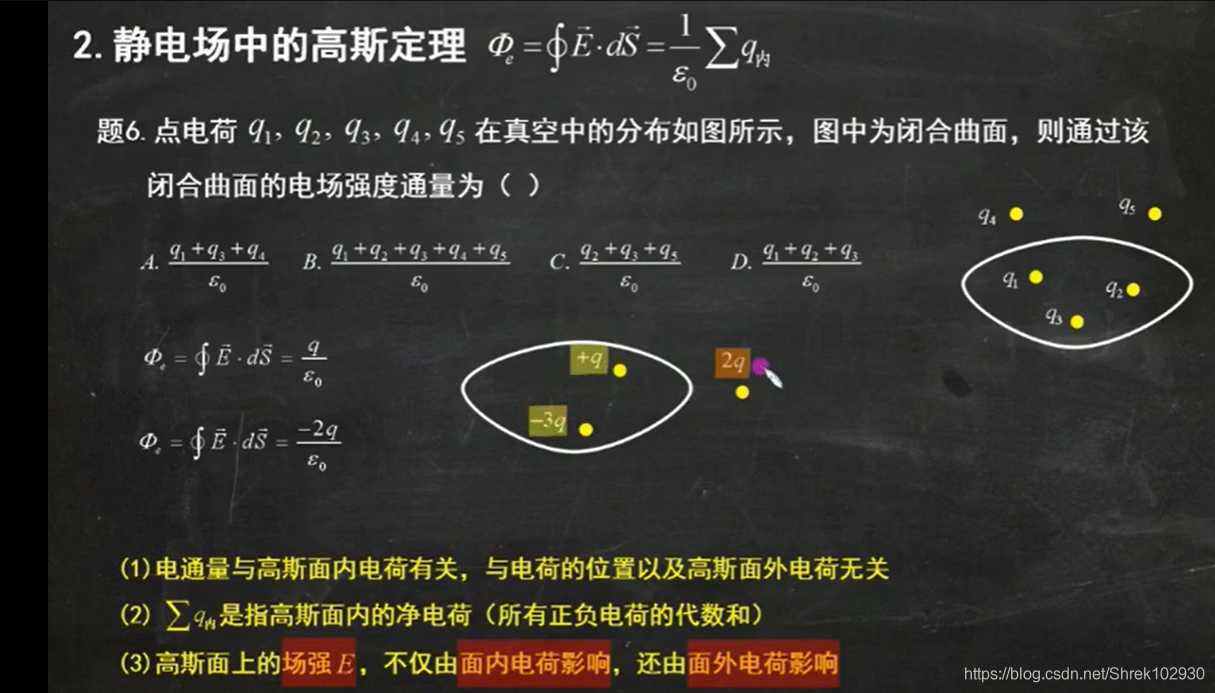 2. 静电场中的高斯定理 Φₑ = ∮E⃗·dS⃗ = 1/ε₀ ∑q内
题6. 点电荷 q₁, q₂, q₃, q₄, q₅ 在真空中的分布如图所示，图中为闭合曲面，则通过该
闭合曲面的电场强度通量为（ ）
q₄ q₅
A. (q₁+q₃+q₄)/ε₀ B. (q₁+q₂+q₃+q₄+q₅)/ε₀ C. (q₂+q₃+q₅)/ε₀ D. (q₁+q₂+q₃)/ε₀
q₁ q₂
q₃
Φₑ = ∮E⃗·dS⃗ = q/ε₀
+q 2q
−3q
Φₑ = ∮E⃗·dS⃗ = −2q/ε₀
(1) 电通量与高斯面内电荷有关，与电荷的位置以及高斯面外电荷无关
(2) ∑q内是指高斯面内的净电荷（所有正负电荷的代数和）
(3) 高斯面上的场强E，不仅由面内电荷影响，还由面外电荷影响
https://blog.csdn.net/Shrek102930